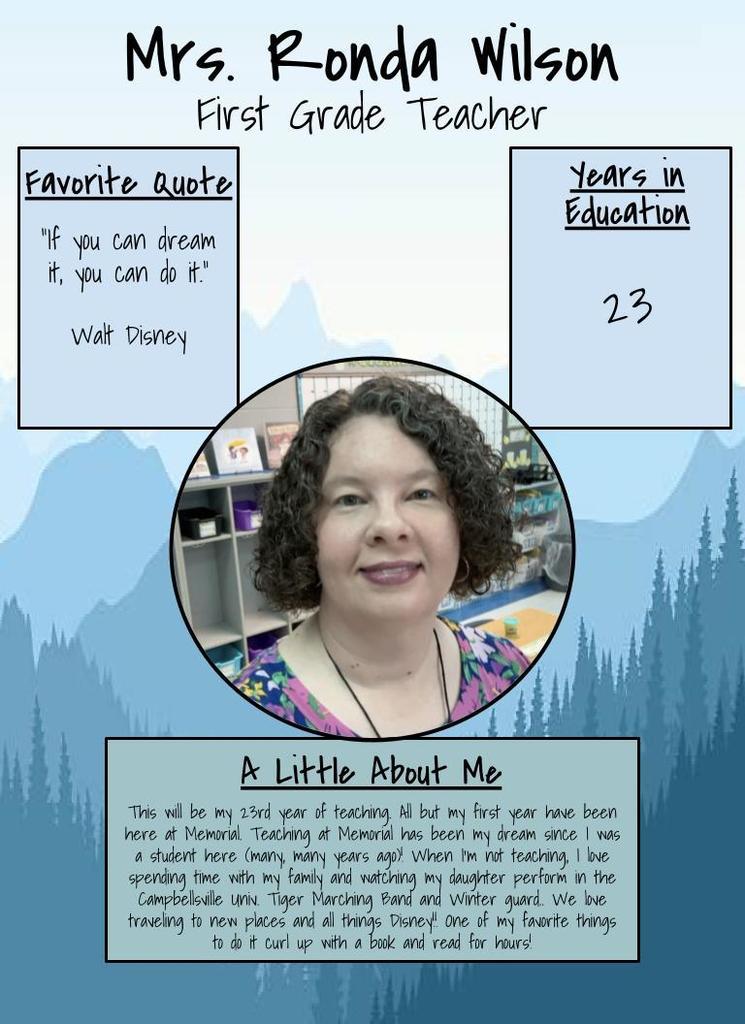 Mrs. Ronda Wilson
First Grade Teacher
Favorite Quote
"If you can dream
it, you can do it."
Walt Disney
Years in
Education
23
A Little About Me
This will be my 23rd year of teaching. All but my first year have been
here at Memorial. Teaching at Memorial has been my dream since I was
a student here (many, many years ago)! When I'm not teaching, I love
spending time with my family and watching my daughter perform in the
Campbellsville Univ. Tiger Marching Band and Winter guard.. We love
traveling to new places and all things Disney!! One of my favorite things
to do it curl up with a book and read for hours!